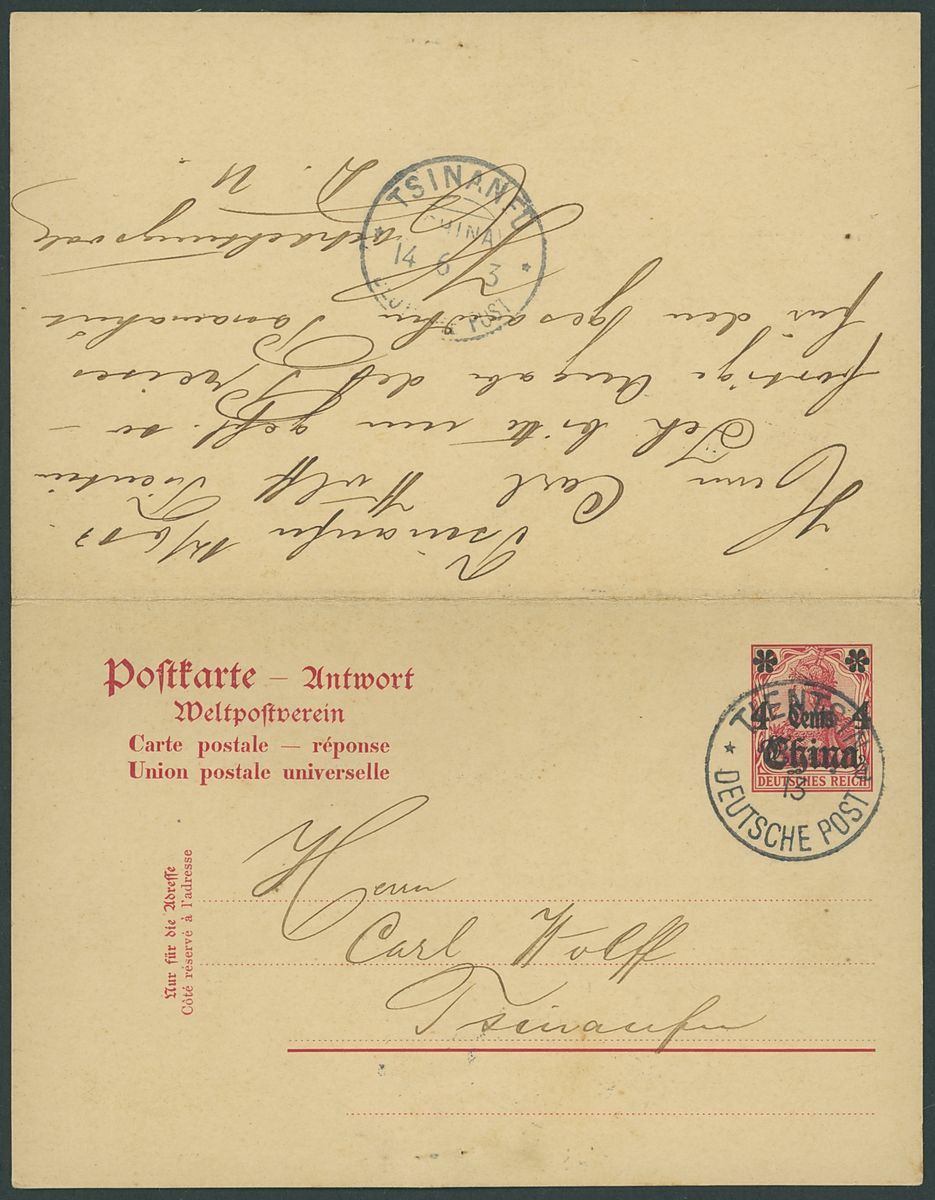 TSINANFU
(CHINA)
14 6 3
DEUTSCHE POST
Tsinanfu 12/6 13
Herrn Carl Wolff Tientsin
Ich bitte nun gefl. so-
fortige Angabe des Preises
für den gesandten
Hochachtungsvoll
Postkarte – Antwort
Weltpostverein
Carte postale — réponse
Union postale universelle
4 Cents 4
China
DEUTSCHES REICH
TIENTSIN
13
DEUTSCHE POST
Nur für die Adresse
Côté réservé à l'adresse
Herrn
Carl Wolff
Tsinanfu